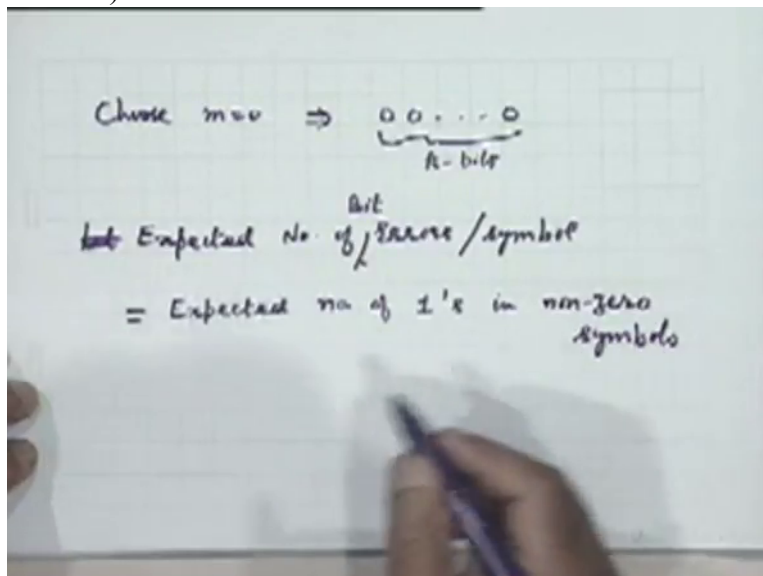 Choose m=0 ⇒ 00...0
k-bits
Bit
Expected No. of Errors/symbol
= Expected no of 1's in non-zero
symbols